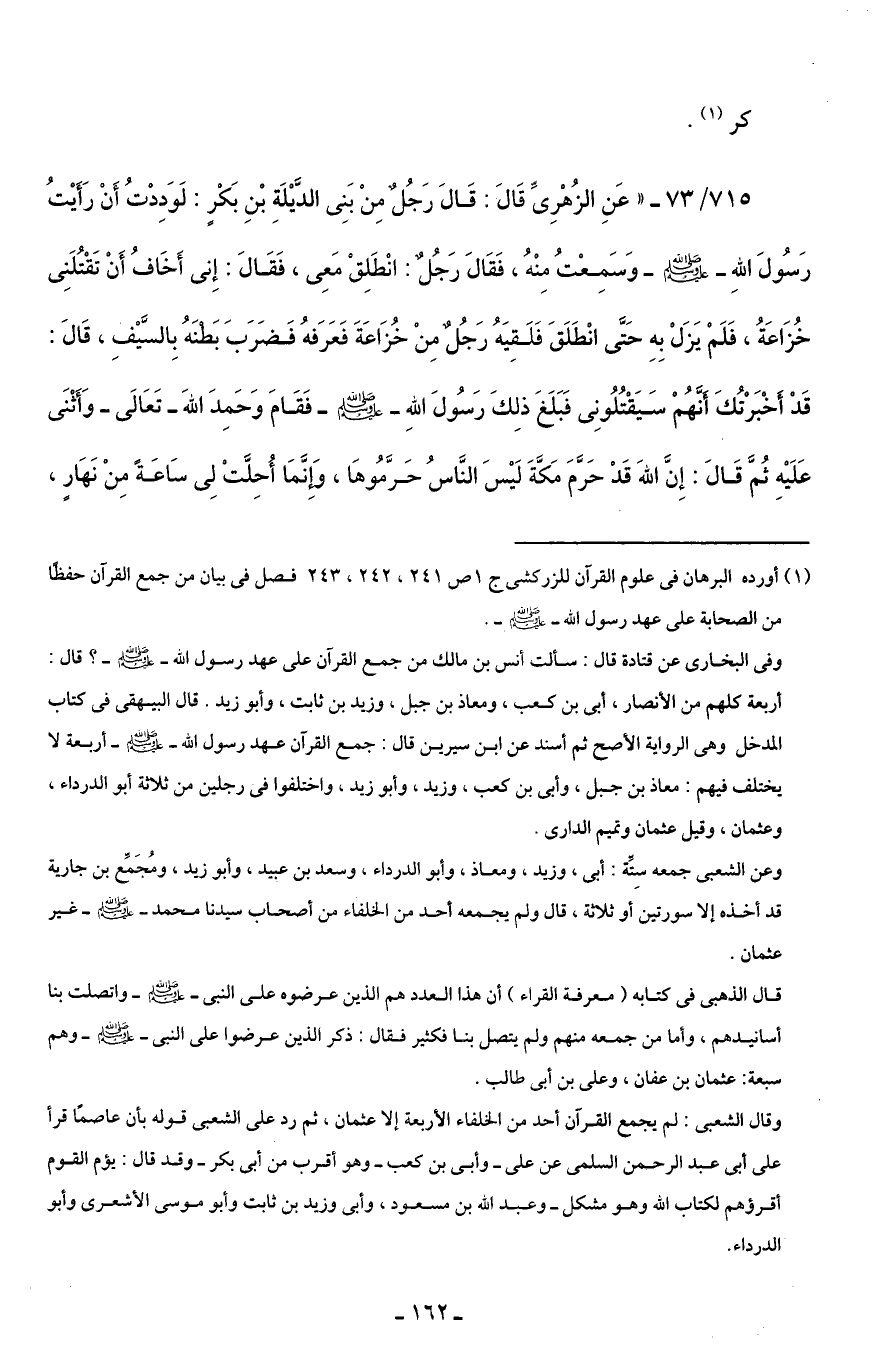 كر (١) .
٧١٥/ ٧٣ ـ « عَنِ الزُهْرِىِّ قَالَ : قَـالَ رَجُلٌ مِنْ بَنِى الدَّيْلَةِ بْنِ بَكْرٍ : لَوَدِدْتُ أَنْ رَأَيْتُ
رَسُولَ اللهِ ـ ﷺ ـ وَسَمِـعْتُ مِنْهُ ، فَقَالَ رَجُلٌ : انْطَلِقْ مَعِى ، فَقَـالَ : إِنى أَخَافُ أَنْ تَقْتُلَنِى
خُزَاعَةُ ، فَلَمْ يَزَلْ بِهِ حَتَّى انْطَلَقَ فَلَـقِيَهُ رَجُلٌ مِنْ خُزَاعَةَ فَعَرَفَهُ فَـضَرَبَ بَطْنَهُ بِالسَّيْفِ ، قَالَ :
قَدْ أَخْبَرْتُكَ أَنَّهُمْ سَـيَقْتُلُونِى فَبَلَغَ ذلِكَ رَسُولَ اللهِ ـ ﷺ ـ فَقَـامَ وَحَمِدَ اللهَ ـ تَعَالَى ـ وَأَثْنَى
عَلَيْهِ ثُمَّ قَـالَ : إِنَّ اللهَ قَدْ حَرَّمَ مَكَّةَ لَيْسَ النَّاسُ حَـرَّمُوهَا ، وَإِنَّمَا أُحِلَّتْ لِى سَاعَـةً مِنْ نَهَارٍ ،
(١) أورده البرهان فى علوم القرآن للزركشى ج ١ ص ٢٤١ ، ٢٤٢ ، ٢٤٣ فـصل فى بيان من جمع القرآن حفظًا
من الصحابة على عهد رسول الله ـ ﷺ ـ .
وفى البخـارى عن قتادة قال : سـألت أنس بن مالك من جمـع القرآن على عهد رسـول الله ـ ﷺ ـ ؟ قال :
أربعة كلهم من الأنصار ، أبى بن كـعب ، ومعاذ بن جبل ، وزيد بن ثابت ، وأبو زيد . قال البيـهقى فى كتاب
المدخل وهى الرواية الأصح ثم أسند عن ابـن سيريـن قال : جمـع القرآن عـهد رسول الله ـ ﷺ ـ أربـعة لا
يختلف فيهم : معاذ بن جـبل ، وأبى بن كعب ، وزيد ، وأبو زيد ، واختلفوا فى رجلين من ثلاثة أبو الدرداء ،
وعثمان ، وقيل عثمان وتميم الدارى .
وعن الشعبى جمعه ستَّة : أبى ، وزيد ، ومعـاذ ، وأبو الدرداء ، وسعد بن عبيد ، وأبو زيد ، ومُجَمِّع بن جارية
قد أخـذه إلا سورتين أو ثلاثة ، قال ولم يجـمعه أحـد من الخلفاء من أصحـاب سيدنا مـحمد ـ ﷺ ـ غـير
عثمان .
قـال الذهبى فى كتـابه ( مـعرفـة القراء ) أن هذا العـدد هم الذين عـرضوه علـى النبى ـ ﷺ ـ واتصلت بنا
أسانيـدهم ، وأما من جمـعه منهم ولم يتصل بنـا فكثير فـقال : ذكر الذين عـرضوا على النبى ـ ﷺ ـ وهم
سبعة: عثمان بن عفان ، وعلى بن أبى طالب .
وقال الشعبى : لم يجمع القـرآن أحد من الخلفاء الأربعة إلا عثمان ، ثم رد على الشعبى قـوله بأن عاصمًا قرأ
على أبى عـبد الرحـمن السلمى عن على ـ وأبـى بن كعب ـ وهو أقـرب من أبى بكر ـ وقـد قال : يؤم القـوم
أقـرؤهم لكتاب الله وهـو مشكل ـ وعـبـد الله بن مسـعود ، وأبى وزيد بن ثابت وأبو مـوسى الأشعـرى وأبو
الدرداء.
ـ ١٦٢ ـ